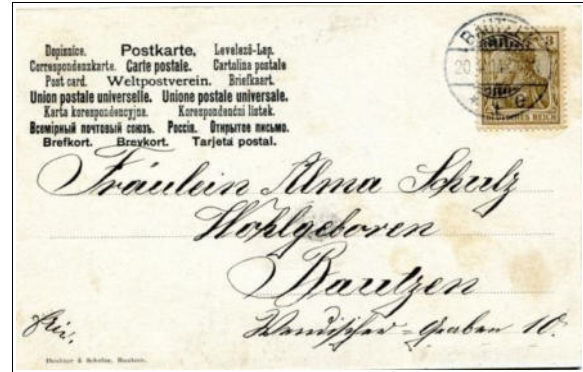 Dopisnice. Postkarte. Levelező-Lap.
Correspondenzkarte. Carte postale. Cartolina postale
Post card. Weltpostverein. Briefkaart.
Union postale universelle. Unione postale universale.
Karta korespondencyjna. Korespondenční lístek.
Всемірный почтовый союзъ. Россія. Открытое письмо.
Brefkort. Brevkort. Tarjeta postal.
BAUTZEN
20
3
DEUTSCHES REICH
Fräulein Alma Schulz
Wohlgeboren
Bautzen
Wendischer-Graben 10.
Hier.